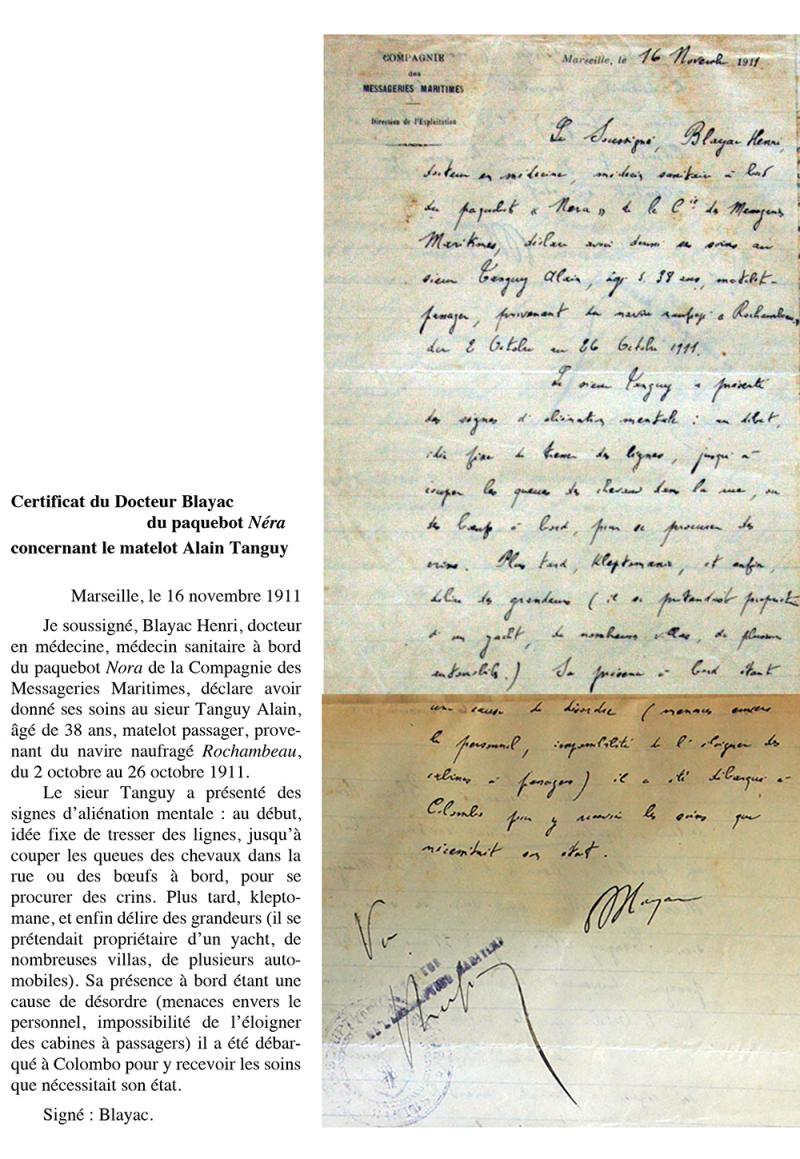 Certificat du Docteur Blayac
du paquebot Néra
concernant le matelot Alain Tanguy
Marseille, le 16 novembre 1911
Je soussigné, Blayac Henri, docteur
en médecine, médecin sanitaire à bord
du paquebot Nora de la Compagnie des
Messageries Maritimes, déclare avoir
donné ses soins au sieur Tanguy Alain,
âgé de 38 ans, matelot passager, prove-
nant du navire naufragé Rochambeau,
du 2 octobre au 26 octobre 1911.
Le sieur Tanguy a présenté des
signes d’aliénation mentale : au début,
idée fixe de tresser des lignes, jusqu’à
couper les queues des chevaux dans la
rue ou des bœufs à bord, pour se
procurer des crins. Plus tard, klepto-
mane, et enfin délire des grandeurs (il se
prétendait propriétaire d’un yacht, de
nombreuses villas, de plusieurs auto-
mobiles). Sa présence à bord étant une
cause de désordre (menaces envers le
personnel, impossibilité de l’éloigner
des cabines à passagers) il a été débar-
qué à Colombo pour y recevoir les soins
que nécessitait son état.
Signé : Blayac.
COMPAGNIE
des
MESSAGERIES MARITIMES
Direction de l'Exploitation
Marseille, le 16 Novemb 1911
Le Soussigné, Blayac Henri,
docteur en médecine, médecin sanitaire à bord
du paquebot « Nera » de la Cie des Messageries
Maritimes, déclare avoir donné ses soins au
sieur Tanguy Alain, âgé de 38 ans, matelot-
passager, provenant du navire naufragé « Rochambeau »,
du 2 Octobre au 26 Octobre 1911.
Le sieur Tanguy a présenté
des signes d'aliénation mentale : au début,
idée fixe de tresser des lignes, jusqu'à
couper les queues des chevaux dans la rue, ou
des bœufs à bord, pour se procurer des
crins. Plus tard, kleptomanie, et enfin,
délire des grandeurs (il se prétendait propriétaire
d'un yacht, de nombreuses villas, de plusieurs
automobiles.) Sa présence à bord étant
une cause de désordre (menaces envers
le personnel, impossibilité de l'éloigner des
cabines à passagers) il a été débarqué à
Colombo pour y recevoir les soins que
nécessitait son état.
Blayac
Vu